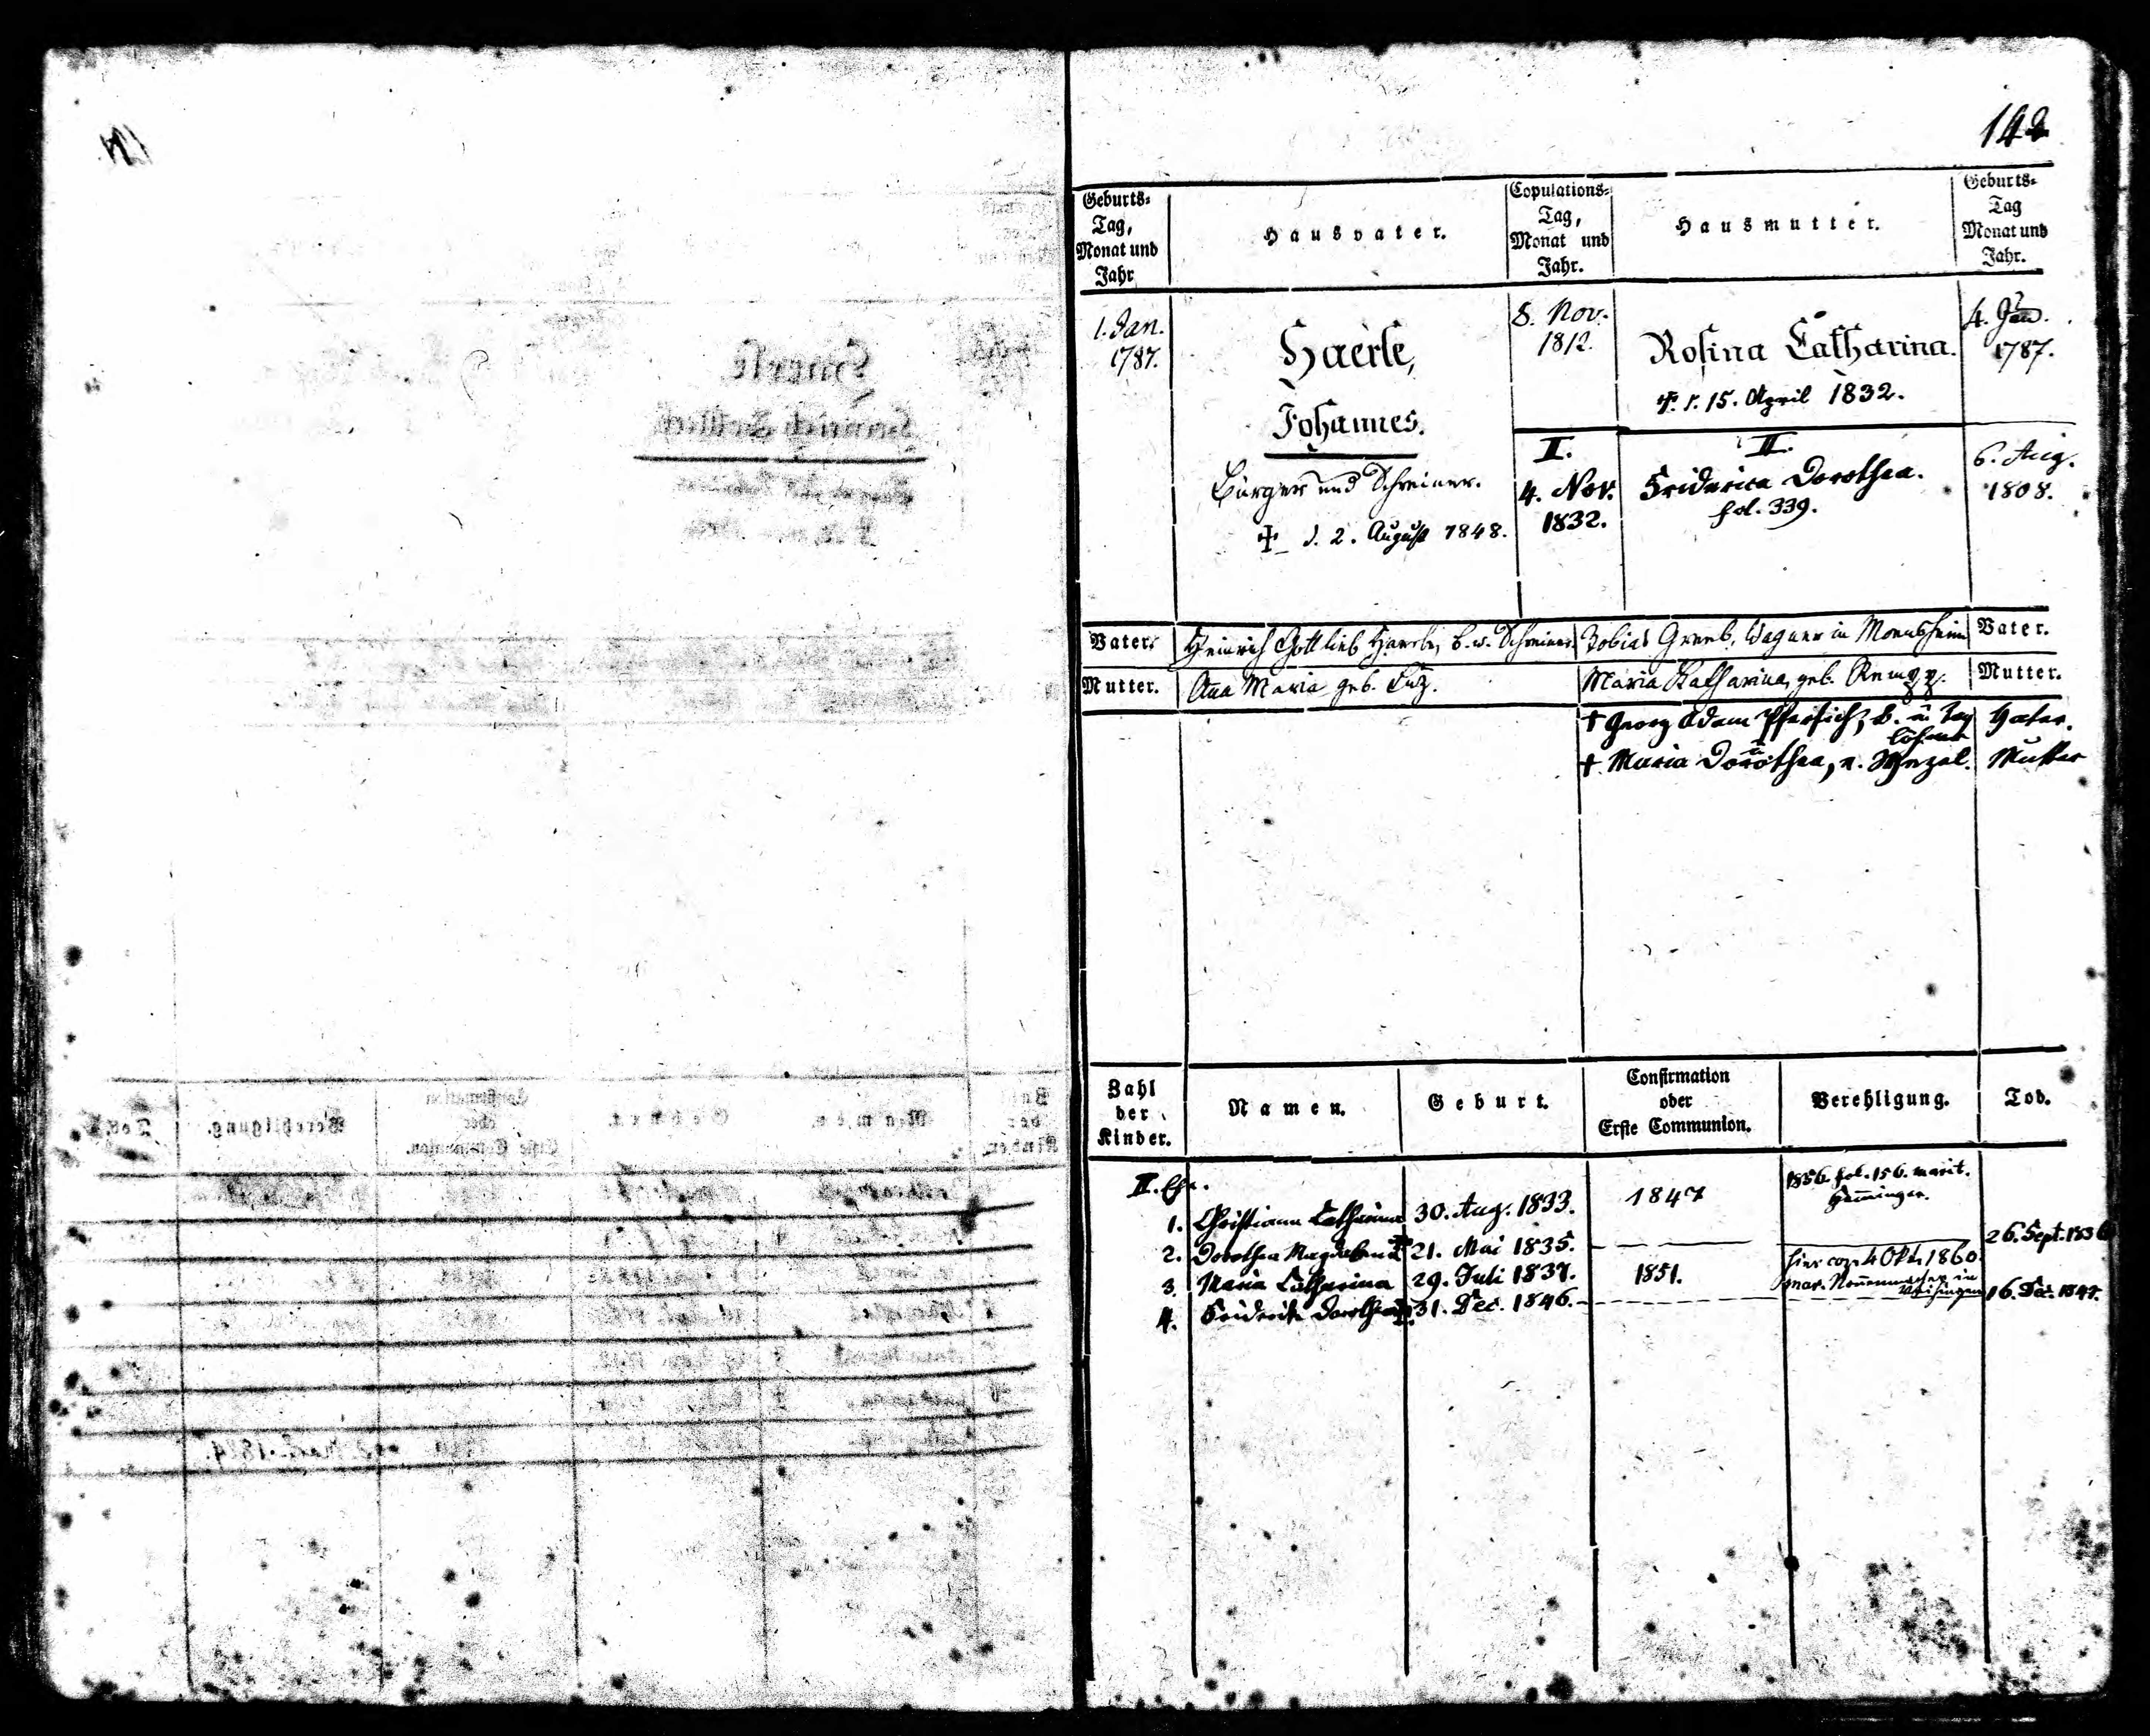 142
Geburts-
Tag,
Monat und
Jahr
Hausvater.
Copulations-
Tag,
Monat und
Jahr.
Hausmutter.
Geburts-
Tag
Monat und
Jahr.
1. Jan.
1787.
Haerle,
Johannes.
Bürger und Schreiner.
✝ d. 2. August 1848.
8. Nov.
1812.
Rosina Catharina.
✝. d. 15. April 1832.
4.
1787.
II.
4. Nov.
1832.
II.
Friderica Dorothea.
fol. 339.
6. Aug.
1808.
Vater:
Heinrich Gottlieb Haerle, B. u. Schreiner.
Tobias Greeb, Wagner in Moensheim
Vater.
Mutter.
Anna Maria, geb. Luz.
Maria Katharina, geb.
Mutter.
† Georg Adam Pfersich, B. u. Tag
löhner
Vater.
† Maria Dorothea, n. Wezel.
Mutter
Zahl
der
Kinder.
Namen.
Geburt.
Confirmation
oder
Erste Communion.
Verehligung.
Tod.
II. Ehe.
1. Christiana Catharina 30. Aug. 1833. 1847 1856. fol. 156. marit.
2. Dorothea Magdalena 21. Mai 1835. 26. Sept. 1836
3. Maria Catharina 29. Juli 1837. 1851. hier cop. 4 Okt. 1860.
mar. in
4. Friderike Dorothea 31. Dec. 1846. 16. Dec. 1847.